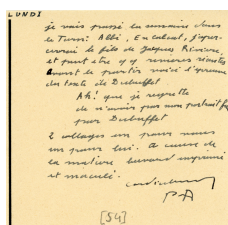 LUNDI
je vais passer la semaine dans
le Tarn : Albi, En Calcat, j'aper-
cevrai le fils de Jacques Rivière,
et peut être y
avant de partir voici d'épreuve
des texte de Dubuffet
Ah! que je regrette
de n'avoir pas mon portrait
par Dubuffet
2 collages un pour vous
un pour lui. à cause de
la matière buvard imprimé
et maculé.
cordialement
P-A
[54]